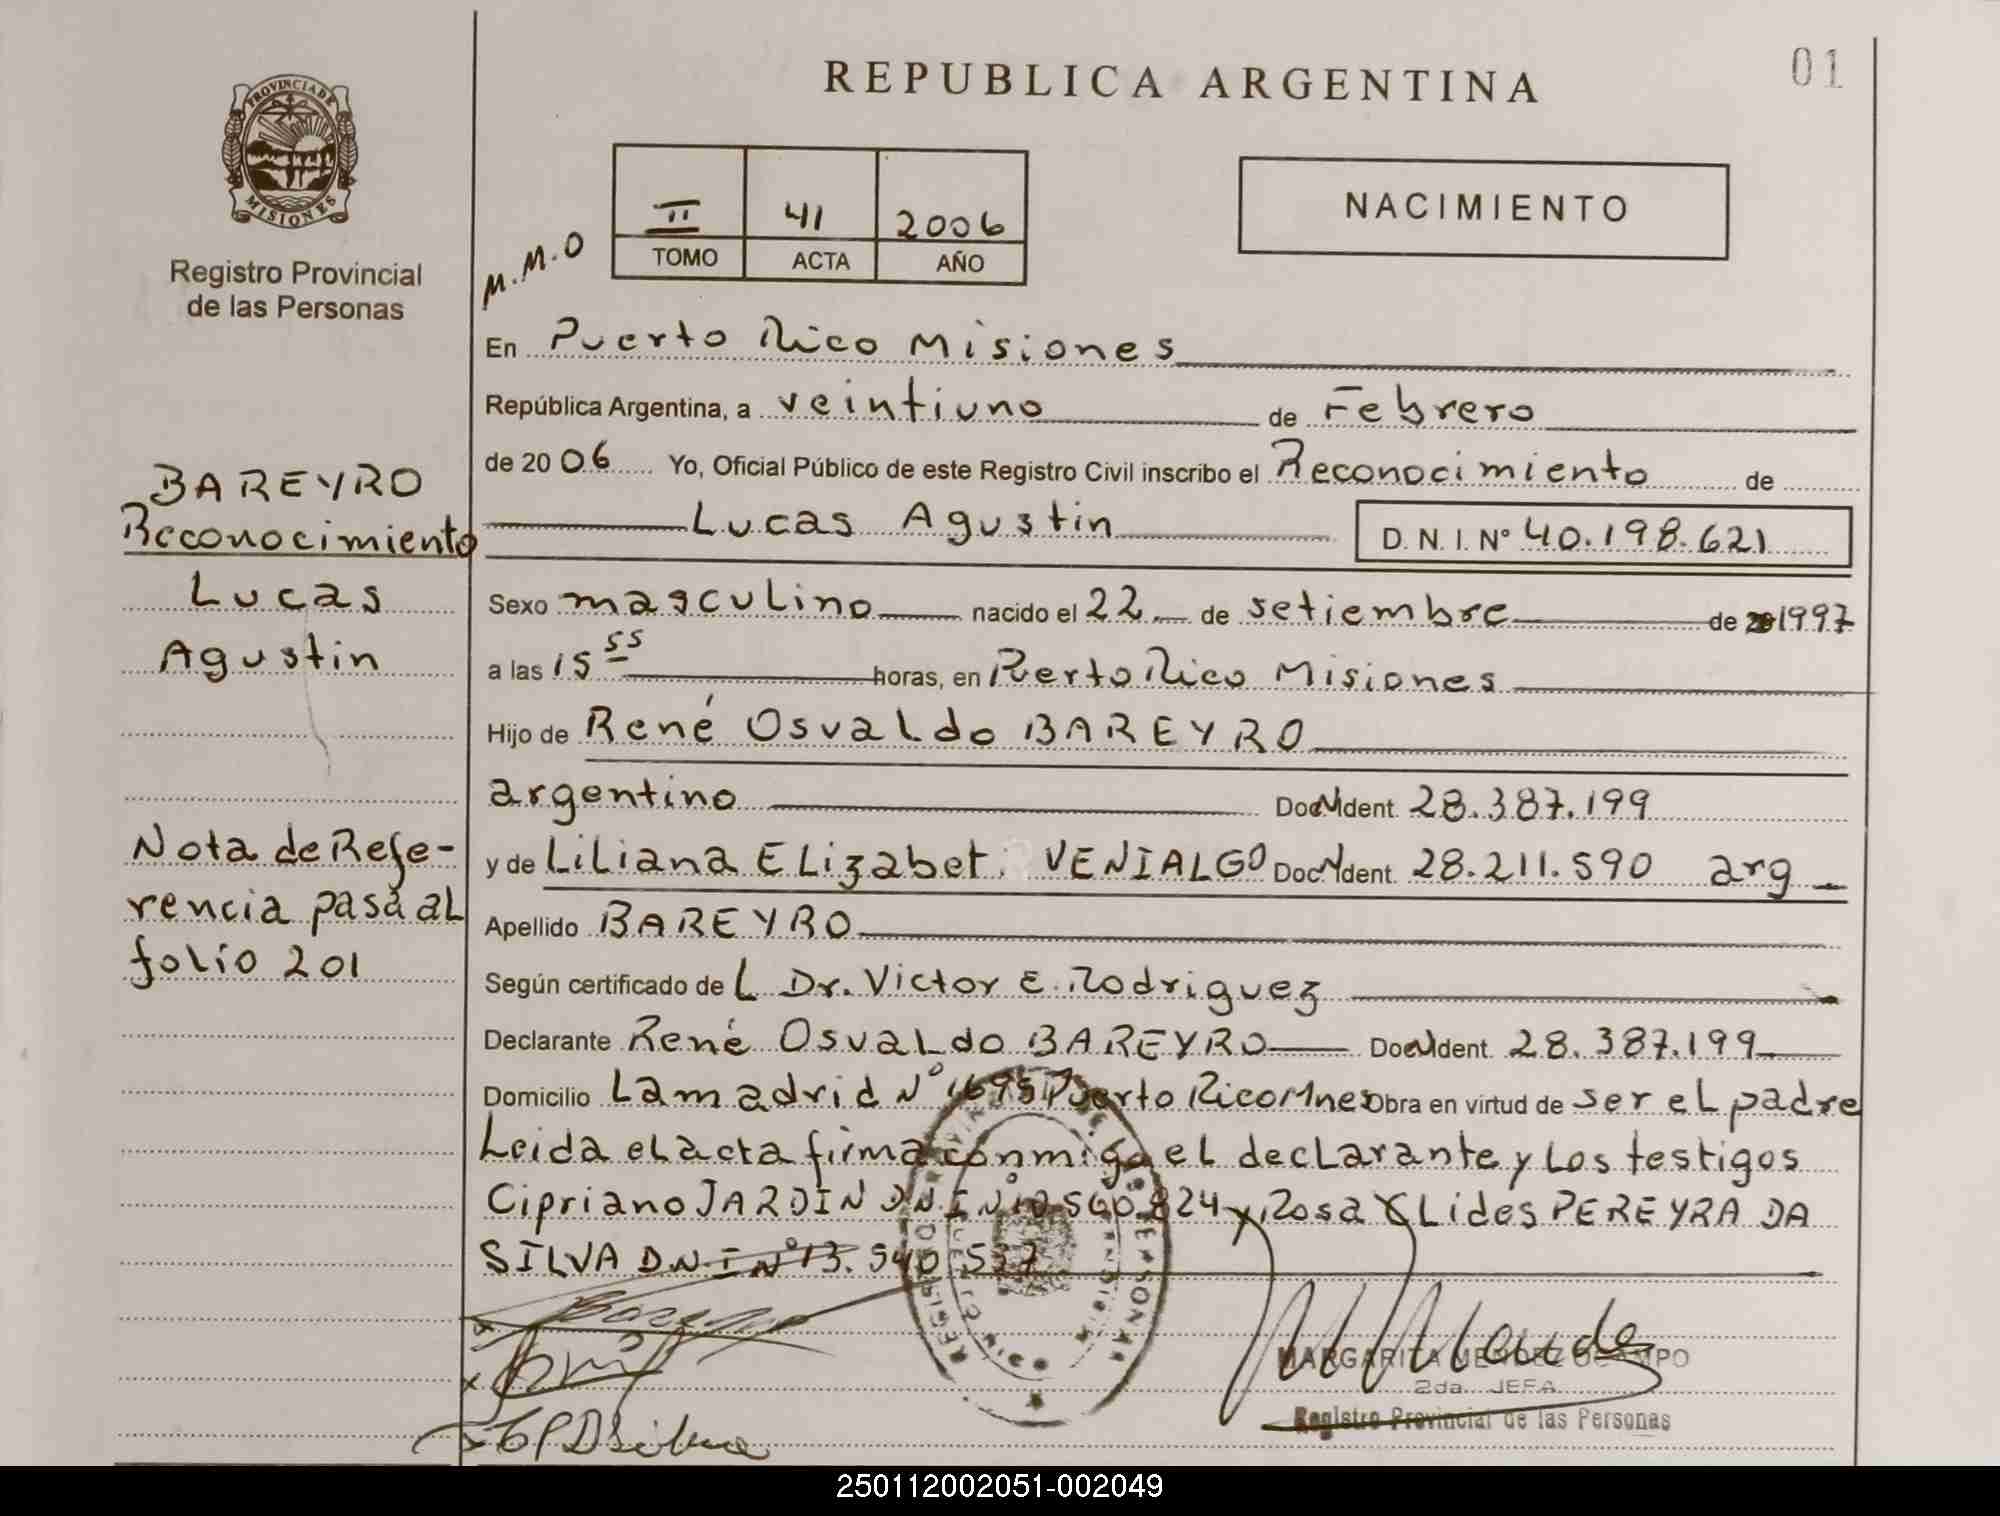 REPUBLICA ARGENTINA
01
PROVINCIA DE
MISIONES
Registro Provincial
de las Personas
II 41 2006
TOMO ACTA AÑO
NACIMIENTO
M.M.O
En Puerto Rico Misiones
República Argentina, a veintiuno de Febrero
de 2006 Yo, Oficial Público de este Registro Civil inscribo el Reconocimiento de
Lucas Agustin D.N.I. Nº 40.198.621
Sexo masculino nacido el 22 de setiembre de 1997
a las 15 55 horas, en Puerto Rico Misiones
Hijo de René Osvaldo BAREYRO
argentino Doc. Ident. 28.387.199
y de Liliana Elizabet VENIALGO Doc. Ident. 28.211.590 arg
Apellido BAREYRO
Según certificado de L Dr. Victor E. Rodriguez
Declarante René Osvaldo BAREYRO Doc. Ident. 28.387.199
Domicilio Lamadrid Nº 1695 Puerto Rico Mnes Obra en virtud de ser el padre
Leida el acta firma conmigo el declarante y Los testigos
Cipriano JARDIN DNI Nº 824 y Rosa PEREYRA DA
SILVA D.N.I Nº 13.540.537
BAREYRO
Reconocimiento
Lucas
Agustin
Nota de Refe-
rencia pasa al
folio 201
MARGARITA MENDEZ OCAMPO
2da. JEFA
Registro Provincial de las Personas
250112002051-002049